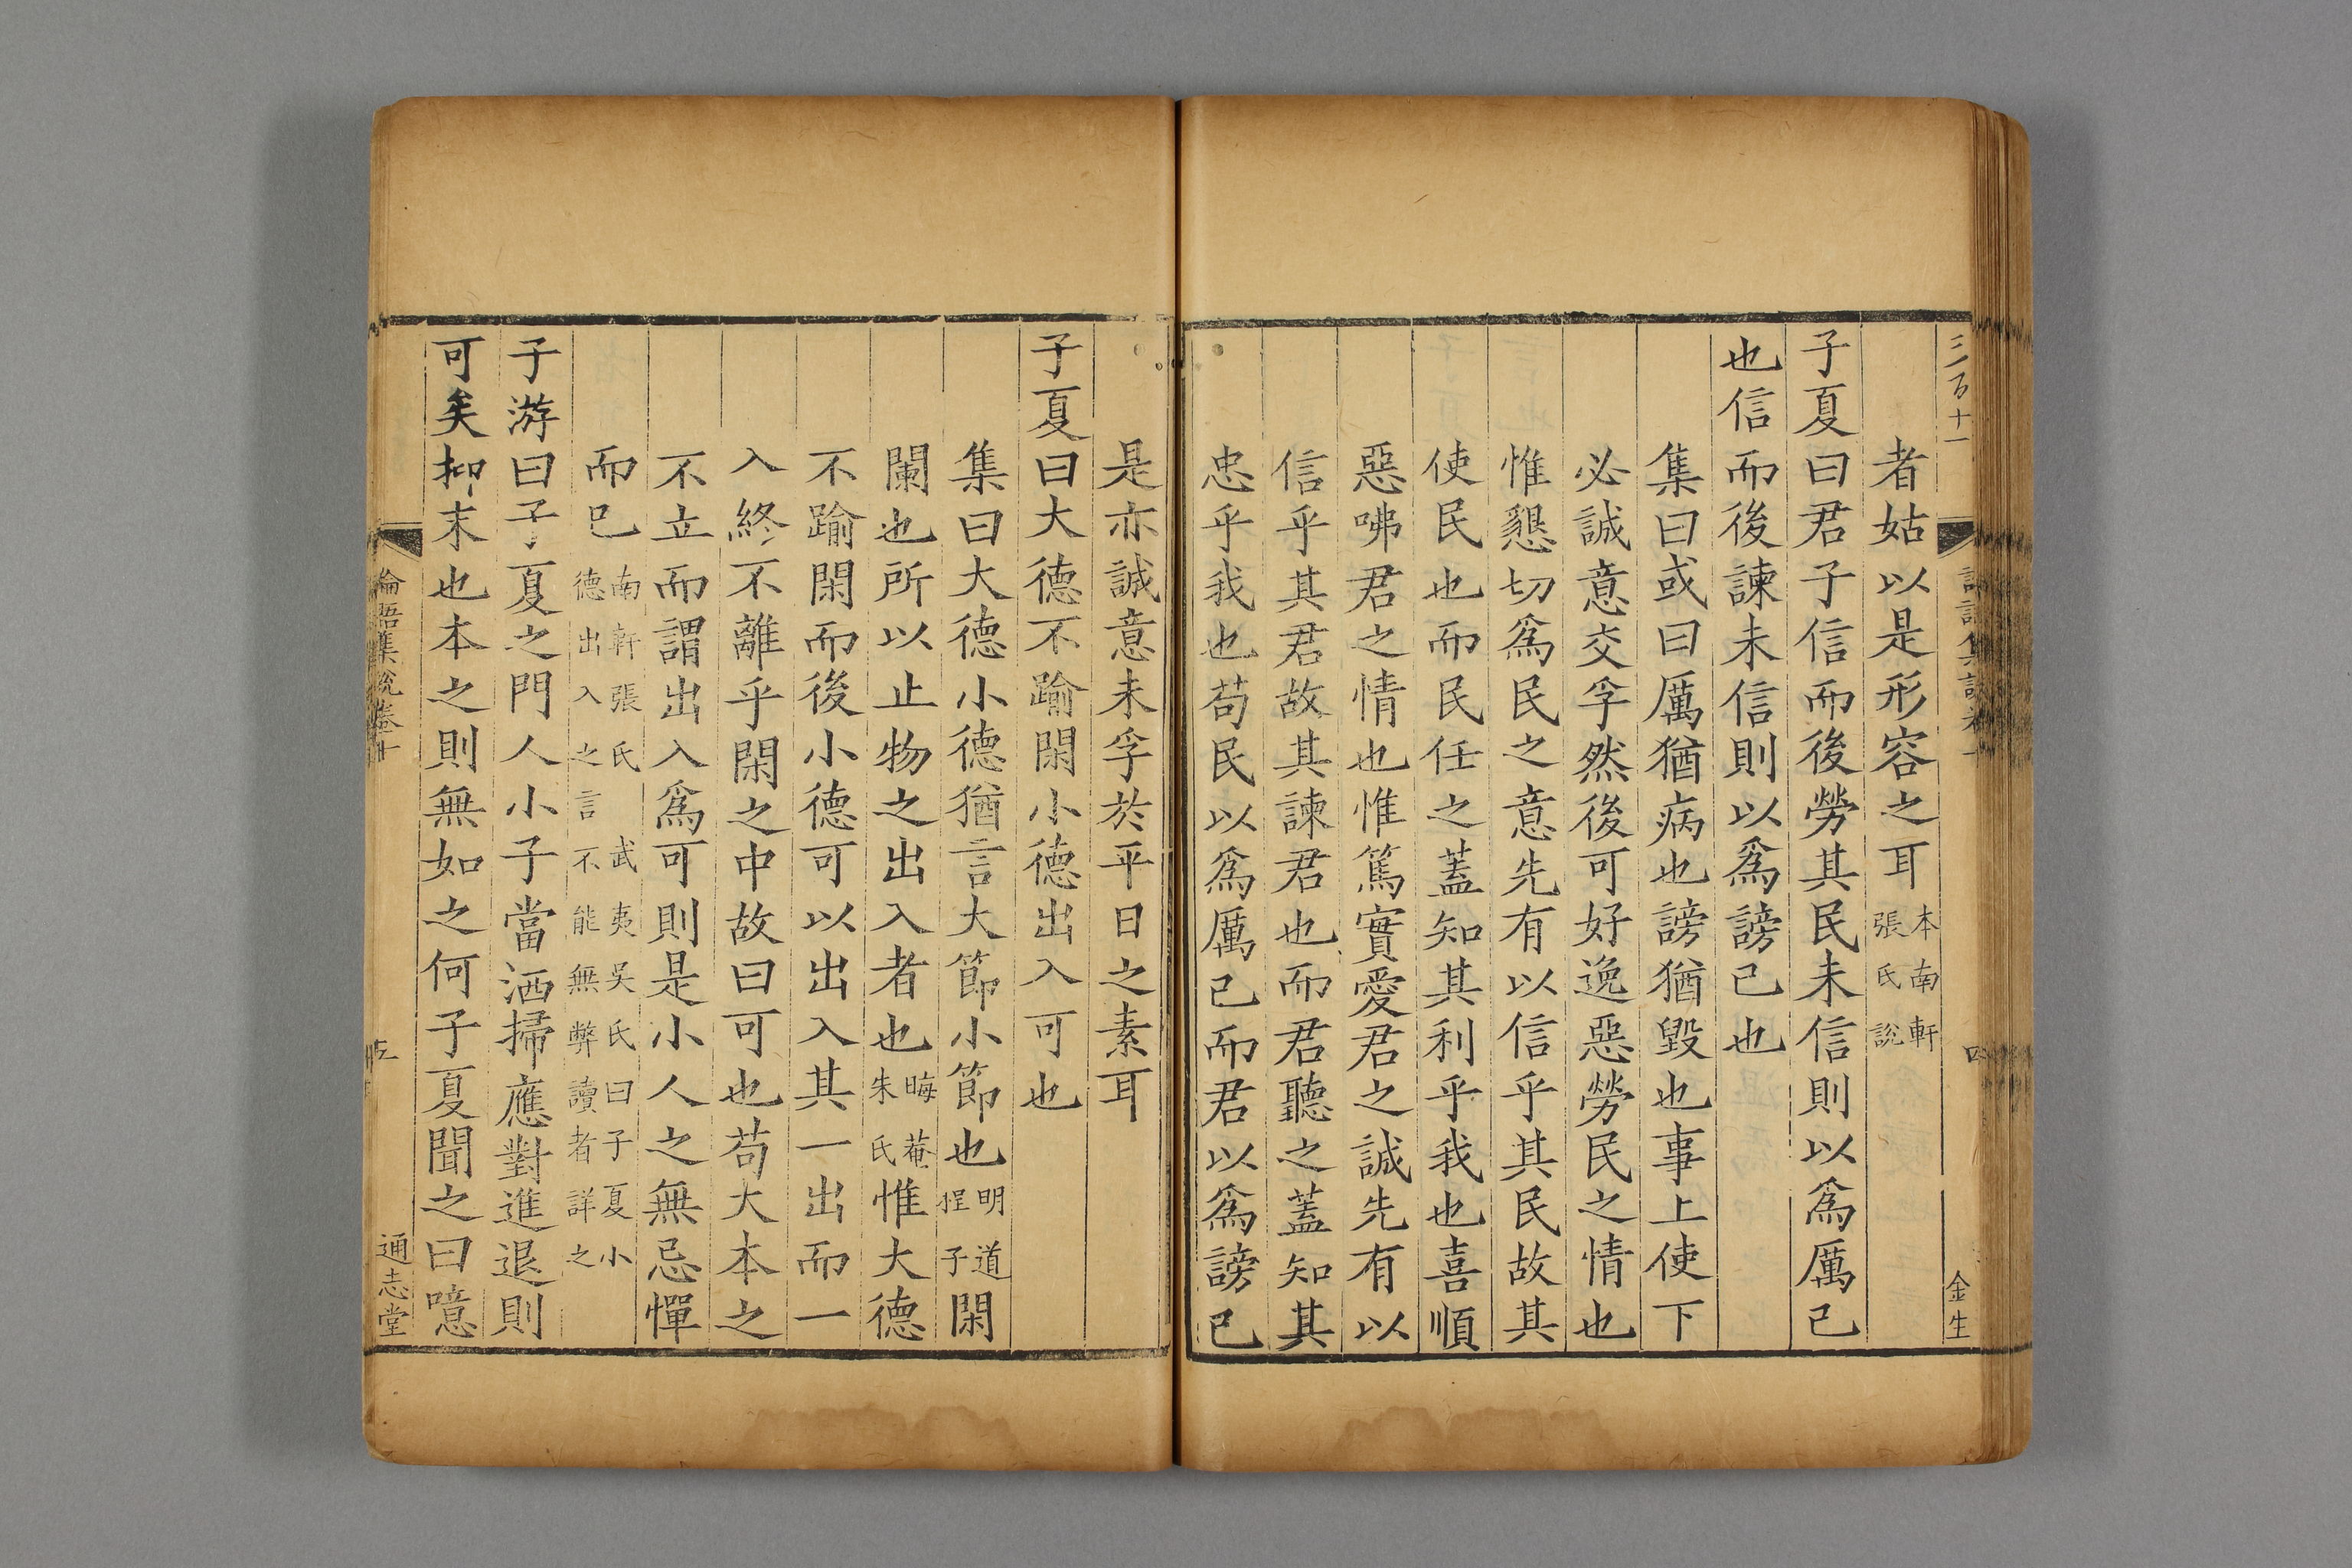 三百十一
金生
者姑以是形容之耳本南軒張氏說
子夏曰君子信而後勞其民未信則以爲厲己
也信而後諫未信則以爲謗己也
集曰或曰厲猶病也謗猶毀也事上使下
必誠意交孚然後可好逸惡勞民之情也
惟懇切爲民之意先有以信乎其民故其
使民也而民任之蓋知其利乎我也喜順
惡咈君之情也惟篤實愛君之誠先有以
信乎其君故其諫君也而君聽之蓋知其
忠乎我也苟民以爲厲己而君以爲謗已
是亦誠意未孚於平日之素耳
子夏曰大德不踰閑小德出入可也
集曰大德小德猶言大節小節也明道程子閑
闌也所以止物之出入者也晦菴朱氏惟大德
不踰閑而後小德可以出入其一出而一
入終不離乎閑之中故曰可也苟大本之
不立而謂出入爲可則是小人之無忌憚
而已南軒張氏 武夷吳氏曰子夏小德出入之言不能無弊讀者詳之
子游曰子夏之門人小子當洒掃應對進退則
可矣抑末也本之則無如之何子夏聞之曰噫
論語集說卷十
五
通志堂